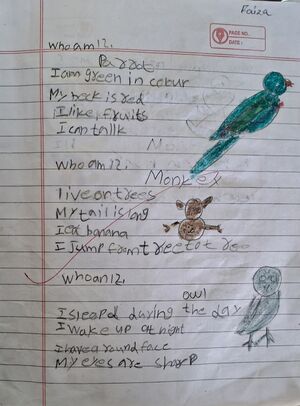 Faiza
PAGE NO.
DATE:
who am I?.
Parrot
I am green in colour
My neck is red
I like, fruits
I can tallk
who am I?.
Monkey
live on trees
My tail is long
I eat banana
I Jump from tree tot reo
who an I?.
owl
I sleepd during the day
I wake up at night
I have a round face
My eyes are sharp